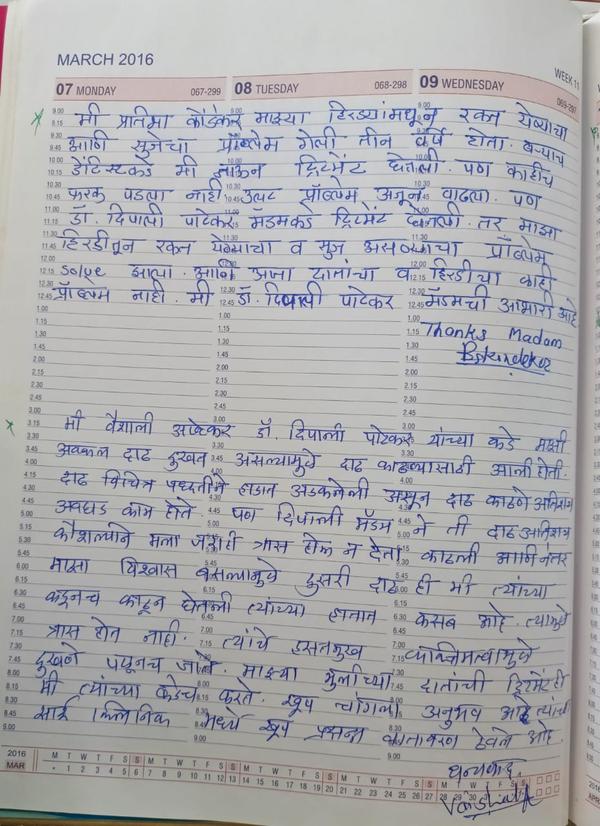 MARCH 2016
WEEK 11
07 MONDAY 067-299 08 TUESDAY 068-298 09 WEDNESDAY 069-297
मी प्रतिमा कोंडेकर माझ्या हिरड्यांमधून रक्त येण्याचा
आणि सुजेचा प्रॉब्लेम गेली तीन वर्षे होता. बऱ्याच
डेंटिस्टकडे मी जाऊन ट्रिटमेंट घेतली. पण काहीच
फरक पडला नाही उलट प्रॉब्लेम अजून वाढला. पण
डॉ. दिपाली पाटेकर मॅडमकडे ट्रिटमेंट घेतली. तर माझा
हिरडीतून रक्त येण्याचा व सुज असण्याचा प्रॉब्लेम
Solve झाला. आणि आता दातांचा व हिरडीचा काही
प्रॉब्लेम नाही. मी डॉ. दिपाली पाटेकर मॅडमची आभारी आहे
Thanks Madam
मी वैशाली डॉ. दिपाली पाटेकर यांच्या कडे माझी
अक्कल दाढ दुखत असल्यामुळे दाढ काढण्यासाठी आली होती.
दाढ विचित्र पध्दतीने हाडात अडकलेली असून दाढ काढणे अतिशय
अवघड काम होते पण दिपाली मॅडम ने ती दाढ अतिशय
कौशल्याने मला जराही त्रास होऊ न देता काढली आणि नंतर
माझा विश्वास बसल्यामुळे दुसरी दाढ ही मी त्यांच्या
कडूनच काढून घेतली त्यांच्या हातात कसब आहे. त्यामुळे
त्रास होत नाही. त्यांचे हसतमुख व्यक्तिमत्वामुळे
दुखणे पळूनच जाते. माझ्या मुलीच्या दातांची ट्रिटमेंट ही
मी त्यांच्या कडेच करते. खूप चांगला अनुभव आहे त्यांची
साई क्लिनिक मध्ये खूप प्रसन्न वातावरण ठेवले आहे.
धन्यवाद
2016 M T W T F S S M T W T F S S M T W T F S S M T W T F S S M T W T F S S
MAR • 1 2 3 4 5 6 7 8 9 10 11 12 13 14 15 16 17 18 19 20 21 22 23 24 25 26 27 28 29 30 31